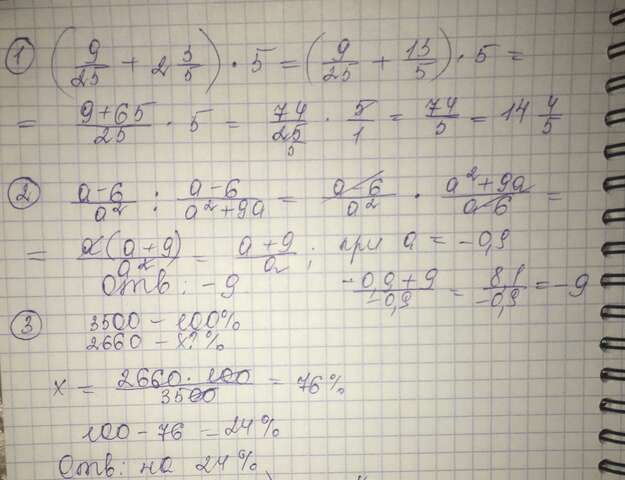 1 (9/25 + 2 3/5) · 5 = (9/25 + 13/5) · 5 =
= (9+65)/25 · 5 = 74/25 · 5/1 = 74/5 = 14 4/5
2 (a-6)/a² : (a-6)/(a²+9a) = (a-6)/a² · (a²+9a)/(a-6) =
= a(a+9)/a² = (a+9)/a ; при a = -0,9
Отв: -9 (-0,9+9)/(-0,9) = 8,1/(-0,9) = -9
3 3500 - 100%
2660 - x? %
x = (2660 · 100)/3500 = 76%
100 - 76 = 24%
Отв: на 24%